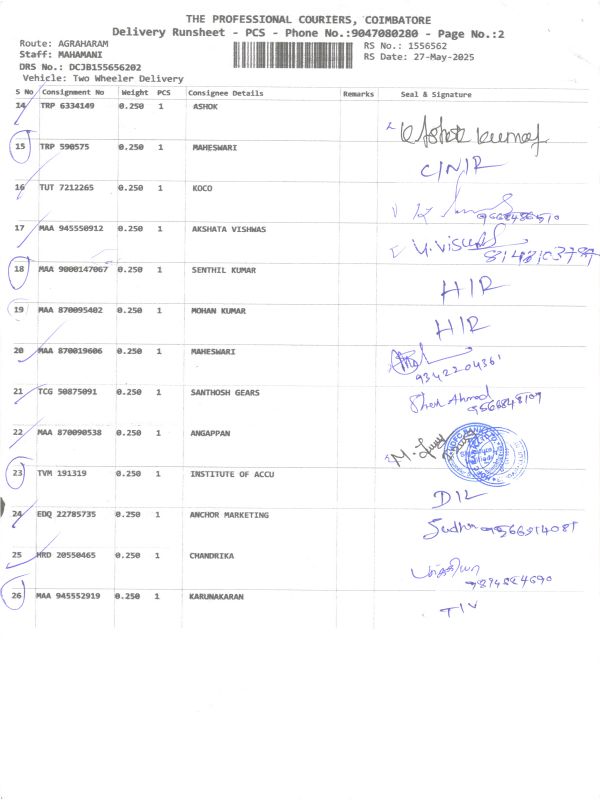 THE PROFESSIONAL COURIERS, COIMBATORE
Delivery Runsheet - PCS - Phone No.:9047080280 - Page No.:2
Route: AGRAHARAM
Staff: MAHAMANI
DRS No.: DCJB155656202
Vehicle: Two Wheeler Delivery
RS No.: 1556562
RS Date: 27-May-2025
S No Consignment No Weight PCS Consignee Details Remarks Seal & Signature
14 TRP 6334149 0.250 1 ASHOK Ashok kumar
15 TRP 590575 0.250 1 MAHESWARI C/N/R
16 TUT 7212265 0.250 1 KOCO
17 MAA 945550912 0.250 1 AKSHATA VISHWAS
18 MAA 9000147067 0.250 1 SENTHIL KUMAR H/R
19 MAA 870095402 0.250 1 MOHAN KUMAR H/R
20 MAA 870019606 0.250 1 MAHESWARI 9342204361
21 TCG 50875091 0.250 1 SANTHOSH GEARS
22 MAA 870090538 0.250 1 ANGAPPAN
23 TVM 191319 0.250 1 INSTITUTE OF ACCU D/L
24 EDQ 22785735 0.250 1 ANCHOR MARKETING Sudha
25 MRD 20550465 0.250 1 CHANDRIKA
26 MAA 945552919 0.250 1 KARUNAKARAN